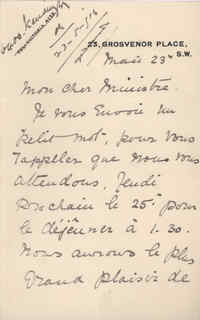 23, GROSVENOR PLACE,
S.W.
Mai 23
Mon cher Ministre.
Je vous envoie un
petit mot, pour vous
rappeler que nous vous
attendons, Jeudi
prochain le 25 pour
le déjeuner à 1.30.
Nous aurons le plus
grand plaisir de